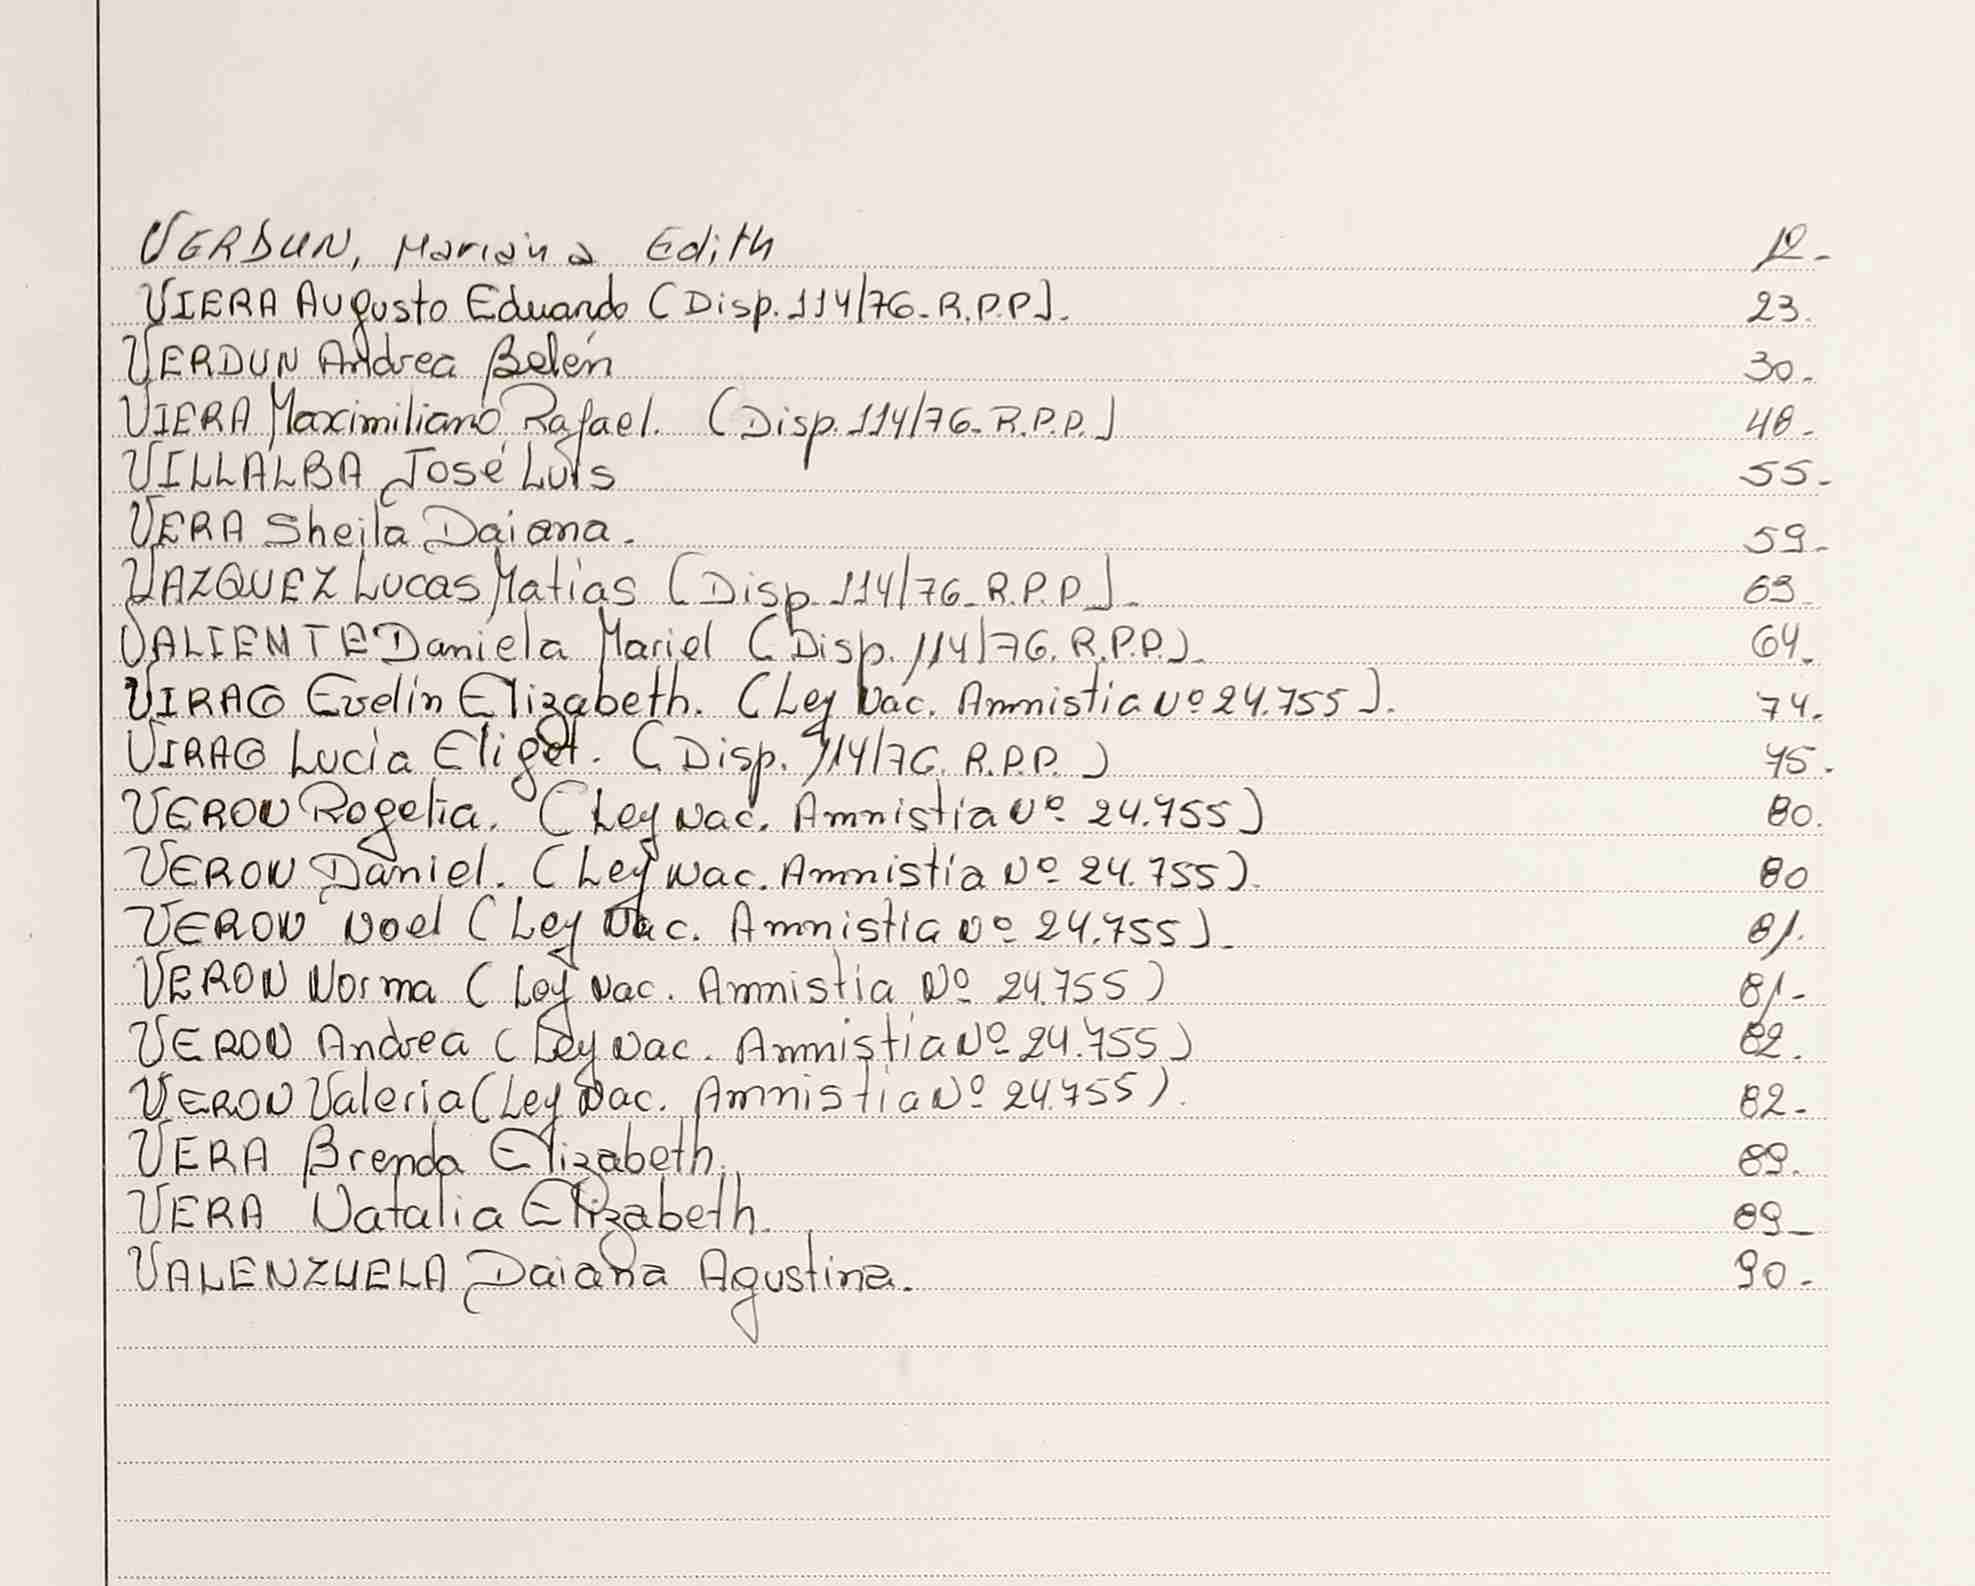 VERDUN, Mariana Edith 12.-
VIERA Augusto Eduardo (Disp. 114/76-R.P.P). 23.
VERDUN Andrea Belén 30.
VIERA Maximiliano Rafael. (Disp. 114/76-R.P.P.) 48.
VILLALBA José Luis 55.
VERA Sheila Daiana. 59.
VAZQUEZ Lucas Matias (Disp. 114/76-R.P.P). 63.
VALIENTE Daniela Mariel (Disp. 114/76. R.P.P.). 64.
VIRAG Evelin Elizabeth. (Ley Nac. Amnistia Nº 24.755). 74.
VIRAG Lucía (Disp. 114/76. R.P.P.) 75.
VERON Rogelia. (Ley Nac. Amnistia Nº 24.755) 80.
VERON Daniel. (Ley Nac. Amnistía Nº 24.755). 80
VERON Noel (Ley Nac. Amnistía Nº 24.755). 81.
VERON Norma (Ley Nac. Amnistia Nº 24.755) 81-
VERON Andrea (Ley Nac. Amnistía Nº 24.755) 82.
VERON Valeria (Ley Nac. Amnistia Nº 24.755). 82-
VERA Brenda Elizabeth. 89.
VERA Natalia Elizabeth. 89-
VALENZUELA Daiana Agustina. 90-